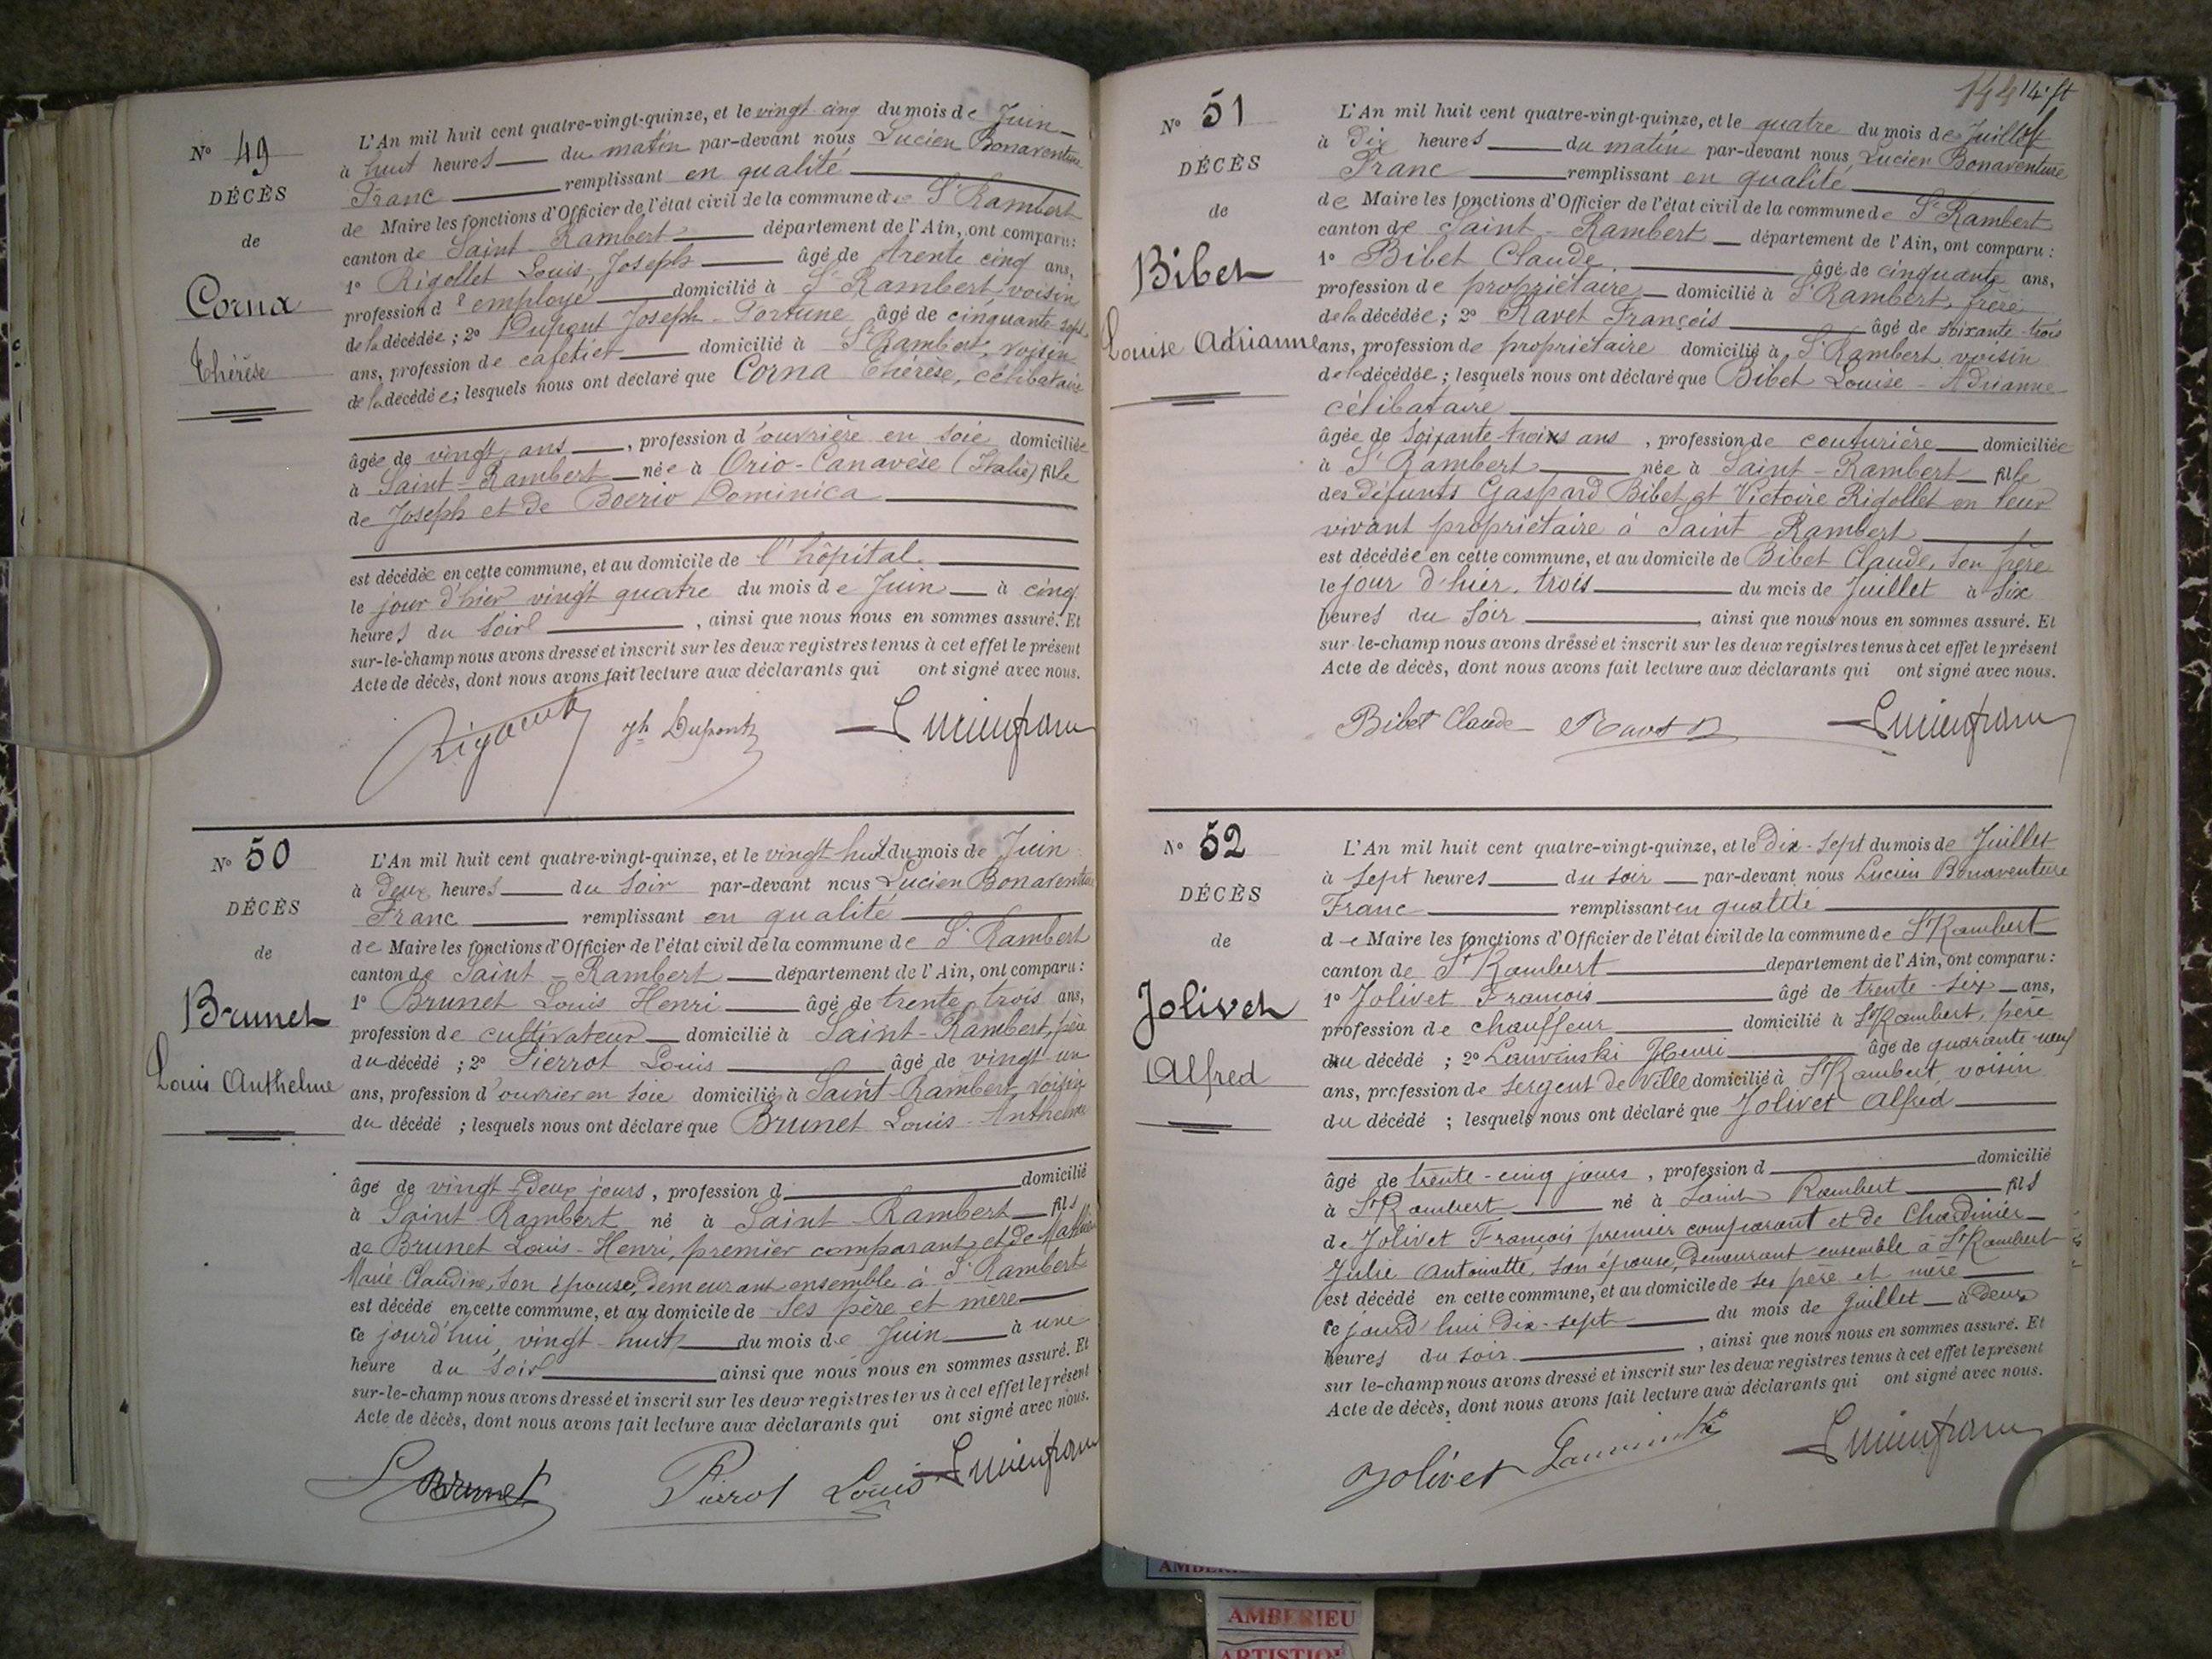 N° 49
DÉCÈS
de
Corna
Thérèse
L'An mil huit cent quatre-vingt-quinze, et le vingt cinq du mois de Juin
à huit heures du matin par-devant nous Lucien Bonaventure
Franc remplissant en qualité
de Maire les fonctions d'Officier de l'état civil de la commune de St Rambert
canton de Saint-Rambert département de l'Ain, ont comparu :
1° Rigollet Louis-Joseph âgé de trente cinq ans,
profession d'employé domicilié à St Rambert, voisin
de la décédée ; 2° Dupont Joseph-Fortuné âgé de cinquante-sept
ans, profession de cafetier domicilié à St Rambert, voisin
de la décédée ; lesquels nous ont déclaré que Corna Thérèse, célibataire
âgée de vingt ans, profession d'ouvrière en soie domiciliée
à Saint-Rambert née à Orio-Canavèse (Italie) fille
de Joseph et de Boerio Dominica
est décédée en cette commune, et au domicile de l'hôpital.
le jour d'hier vingt quatre du mois de Juin à cinq
heures du soir, ainsi que nous nous en sommes assuré. Et
sur-le-champ nous avons dressé et inscrit sur les deux registres tenus à cet effet le présent
Acte de décès, dont nous avons fait lecture aux déclarants qui ont signé avec nous.
Jh Dupont Lucien franc
N° 50
DÉCÈS
de
Brunet
Louis Anthelme
L'An mil huit cent quatre-vingt-quinze, et le vingt huit du mois de Juin
à deux heures du soir par-devant nous Lucien Bonaventure
Franc remplissant en qualité
de Maire les fonctions d'Officier de l'état civil de la commune de St Rambert
canton de Saint-Rambert département de l'Ain, ont comparu :
1° Brunet Louis Henri âgé de trente-trois ans,
profession de cultivateur domicilié à Saint-Rambert, père
du décédé ; 2° Pierrot Louis âgé de vingt un
ans, profession d'ouvrier en soie domicilié à Saint-Rambert voisin
du décédé ; lesquels nous ont déclaré que Brunet Louis-Anthelme
âgé de vingt-deux jours, profession d domicilié
à Saint-Rambert né à Saint-Rambert fils
de Brunet Louis-Henri, premier comparant et de
Marie Claudine, son épouse, demeurant ensemble à St Rambert
est décédé en cette commune, et au domicile de ses père et mère
ce jourd'hui vingt-huit du mois de Juin à une
heure du soir ainsi que nous nous en sommes assuré. Et
sur-le-champ nous avons dressé et inscrit sur les deux registres tenus à cet effet le présent
Acte de décès, dont nous avons fait lecture aux déclarants qui ont signé avec nous.
L Brunet Pierrot Louis Lucien franc
N° 51
DÉCÈS
de
Bibet
Louise Adrianne
L'An mil huit cent quatre-vingt-quinze, et le quatre du mois de Juillet
à dix heures du matin par-devant nous Lucien Bonaventure
Franc remplissant en qualité
de Maire les fonctions d'Officier de l'état civil de la commune de St Rambert
canton de Saint-Rambert département de l'Ain, ont comparu :
1° Bibet Claude âgé de cinquante ans,
profession de propriétaire domicilié à St Rambert, frère
de la décédée ; 2° Ravet François âgé de soixante-trois
ans, profession de propriétaire domicilié à St Rambert voisin
de la décédée ; lesquels nous ont déclaré que Bibet Louise-Adrianne
célibataire
âgée de soixante-trois ans, profession de couturière domiciliée
à St Rambert née à Saint-Rambert fille
des défunts Gaspard Bibet et Victoire Rigollet en leur
vivant propriétaire à Saint-Rambert
est décédée en cette commune, et au domicile de Bibet Claude, son frère
le jour d'hier, trois du mois de Juillet à six
heures du soir, ainsi que nous nous en sommes assuré. Et
sur-le-champ nous avons dressé et inscrit sur les deux registres tenus à cet effet le présent
Acte de décès, dont nous avons fait lecture aux déclarants qui ont signé avec nous.
Bibet Claude Ravet Lucien franc
N° 52
DÉCÈS
de
Jolivet
Alfred
L'An mil huit cent quatre-vingt-quinze, et le dix-sept du mois de Juillet
à sept heures du soir par-devant nous Lucien Bonaventure
Franc remplissant en qualité
de Maire les fonctions d'Officier de l'état civil de la commune de St Rambert
canton de St Rambert département de l'Ain, ont comparu :
1° Jolivet François âgé de trente-six ans,
profession de chauffeur domicilié à St Rambert, père
du décédé ; 2° Lauvinski Henri âgé de quarante-neuf
ans, profession de sergent de ville domicilié à St Rambert, voisin
du décédé ; lesquels nous ont déclaré que Jolivet Alfred
âgé de trente-cinq jours, profession d domicilié
à St Rambert né à Saint Rambert fils
de Jolivet François premier comparant et de Chardinier
Julie Antoinette, son épouse, demeurant ensemble à St Rambert
est décédé en cette commune, et au domicile de ses père et mère
ce jourd'hui dix-sept du mois de Juillet à deux
heures du soir, ainsi que nous nous en sommes assuré. Et
sur le-champ nous avons dressé et inscrit sur les deux registres tenus à cet effet le présent
Acte de décès, dont nous avons fait lecture aux déclarants qui ont signé avec nous.
Jolivet Lauvinski Lucien franc
AMBERIEU